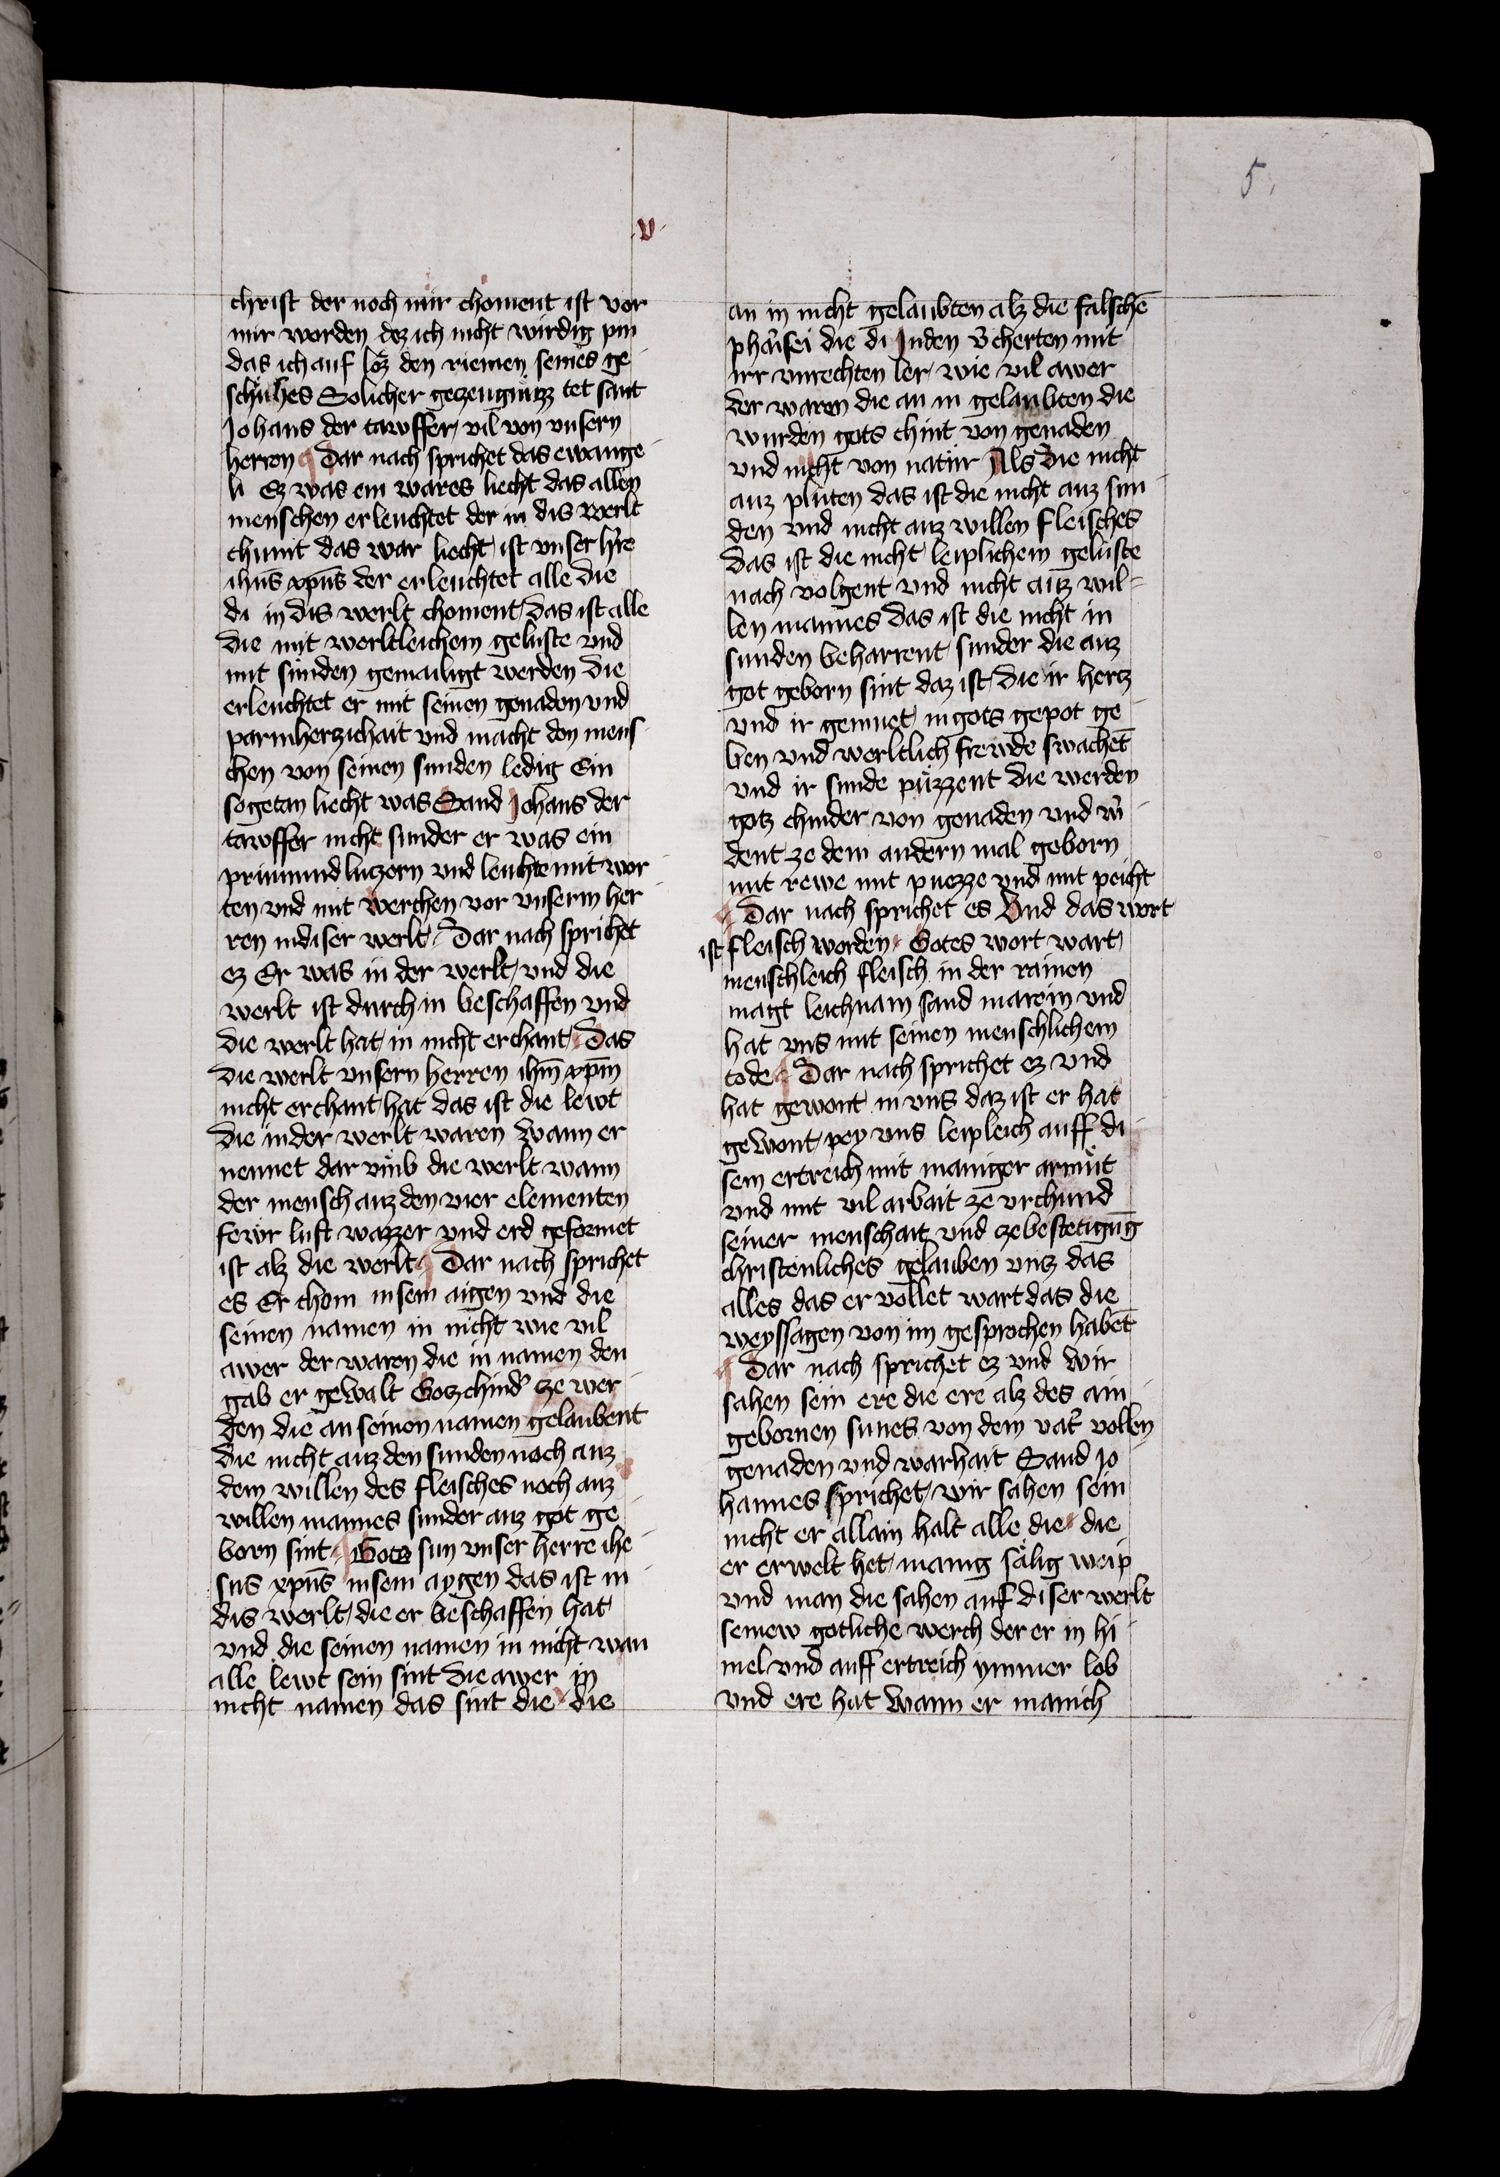 5.
v
christ der noch mir choment ist vor
mir worden dez ich nicht wirdig pin
das ich auf loͤz den riemen seines ge
schuͤhes Solicher gezeugnuͤzz tet sant
Johans der tawffer vil von vnsern
herren ¶ Dar nach sprichet das ewange
li Ez was ein wares liecht das allen
menschen erleuchtet der in dis werlt
chumt das war liecht ist vnser hr̄e
ihūs xpūs der erleuchtet alle die
di in dis werlt choment Das ist alle
die mit werltleichem geluste vnd
mit sunden gemailigt werden die
erleuchtet er mit seinen genaden vnd
parmherzichait vnd macht den mens
chen von seinen sunden ledig Ein
sogetan liecht was Sand Johans der
tawffer nicht sunder er was ein
prinnund luzern vnd leuchte mit wor
ten vnd mit werchen vor vnserm her
ren in diser werlt Dar nach sprichet
ez Er was in der werlt vnd die
werlt ist durch in beschaffen vnd
die werlt hat in nicht erchant Das
die werlt vnsern herren ihm̄ xpm̄
nicht erchant hat das ist die lewt
die in der werlt waren wann er
nennet dar vmb die werlt wann
der mensch auz den vier elementen
fewr luft wazzer vnd erd geformet
ist alz die werlt ¶ Dar nach sprichet
es Er chom in sein aigen vnd die
seinen namen in nicht wie vil
awer der waren die in namen den
gab er gewalt Gotz chind' ze wer
den die an seinen namen gelaubent
die nicht auz den sunden noch auz
dem willen des fleisches noch auz
willen mannes sunder auz got ge
born sint ¶ Gotes sun vnser herre ihe
sus xpūs in sein aygen das ist in
dis werlt die er beschaffen hat
vnd die seinen namen in nicht wan
alle lewt sein sint die awer in
nicht namen das sint die die
an in nicht gelaubten alz die falschē
phaͤrisei die di Juden v̓cherten mit
irr vnrechten ler wie vil awer
der waren die an in gelaubten die
wurden gots chint von genaden
vnd nicht von natuͤr Als die nicht
auz pluͤten das ist die nicht auz sun
den vnd nicht auz willen fleisches
das ist die nicht leiplichem geluste
nach volgent vnd nicht auz wil-
len mannes das ist die nicht in
sunden beharrent sunder die auz
got geborn sint daz ist die ir hertz
vnd ir gemuet in gots gepot ge
ben vnd werltlich frewde swachēt
vnd ir sunde puͤzzent die werden
gotz chinder von genaden vnd w̓
dent ze dem andern mal geborn
mit rewe mit puezze vnd mit peicht
¶ Dar nach sprichet es Vnd das wort
ist fleisch worden Gotes wort wart
menschleich fleisch in der rainen
magt leichnam sand marein vnd
hat vns mit seinen menschlichem
tode ¶ Dar nach sprichet ez vnd
hat gewont in vns daz ist er hat
gewont pey vns leipleich auff di
sem ertreich mit maniger armuͤt
vnd mit vil arbait ze vrchund
seiner menschait vnd ze bestetigūg
christenliches gelauben vnz das
alles das er vollet wart das die
weyssagen von im gesprochen habēt
¶ Dar nach sprichet ez vnd wir
sahen sein ere die ere alz des ain
gebornen sunes von dem vat̓ vollen
genaden vnd warhait Sand Jo
hannes sprichet wir sahen sein
nicht er allain halt alle die die
er erwelt het manig saͤlig weip
vnd man die sahen auf diser werlt
seinew gotliche werch der er in hi
mel vnd auff ertreich ymmer lob
vnd ere hat wann er manich